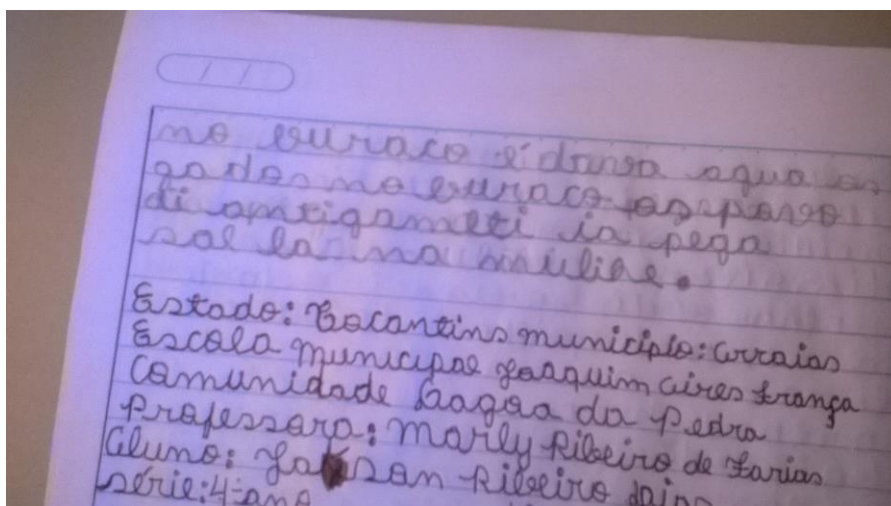 no buraco é dansa agua os
gados no buraco os povo
di antigameti ia pega
sal la na muliae.
Estado: Tocantins município: Arraias
Escola municipal Joaquim Aires França
Comunidade Lagoa da Pedra
Professora: Marly Ribeiro de Farias
Aluno: Ribeiro
série: 4º ano